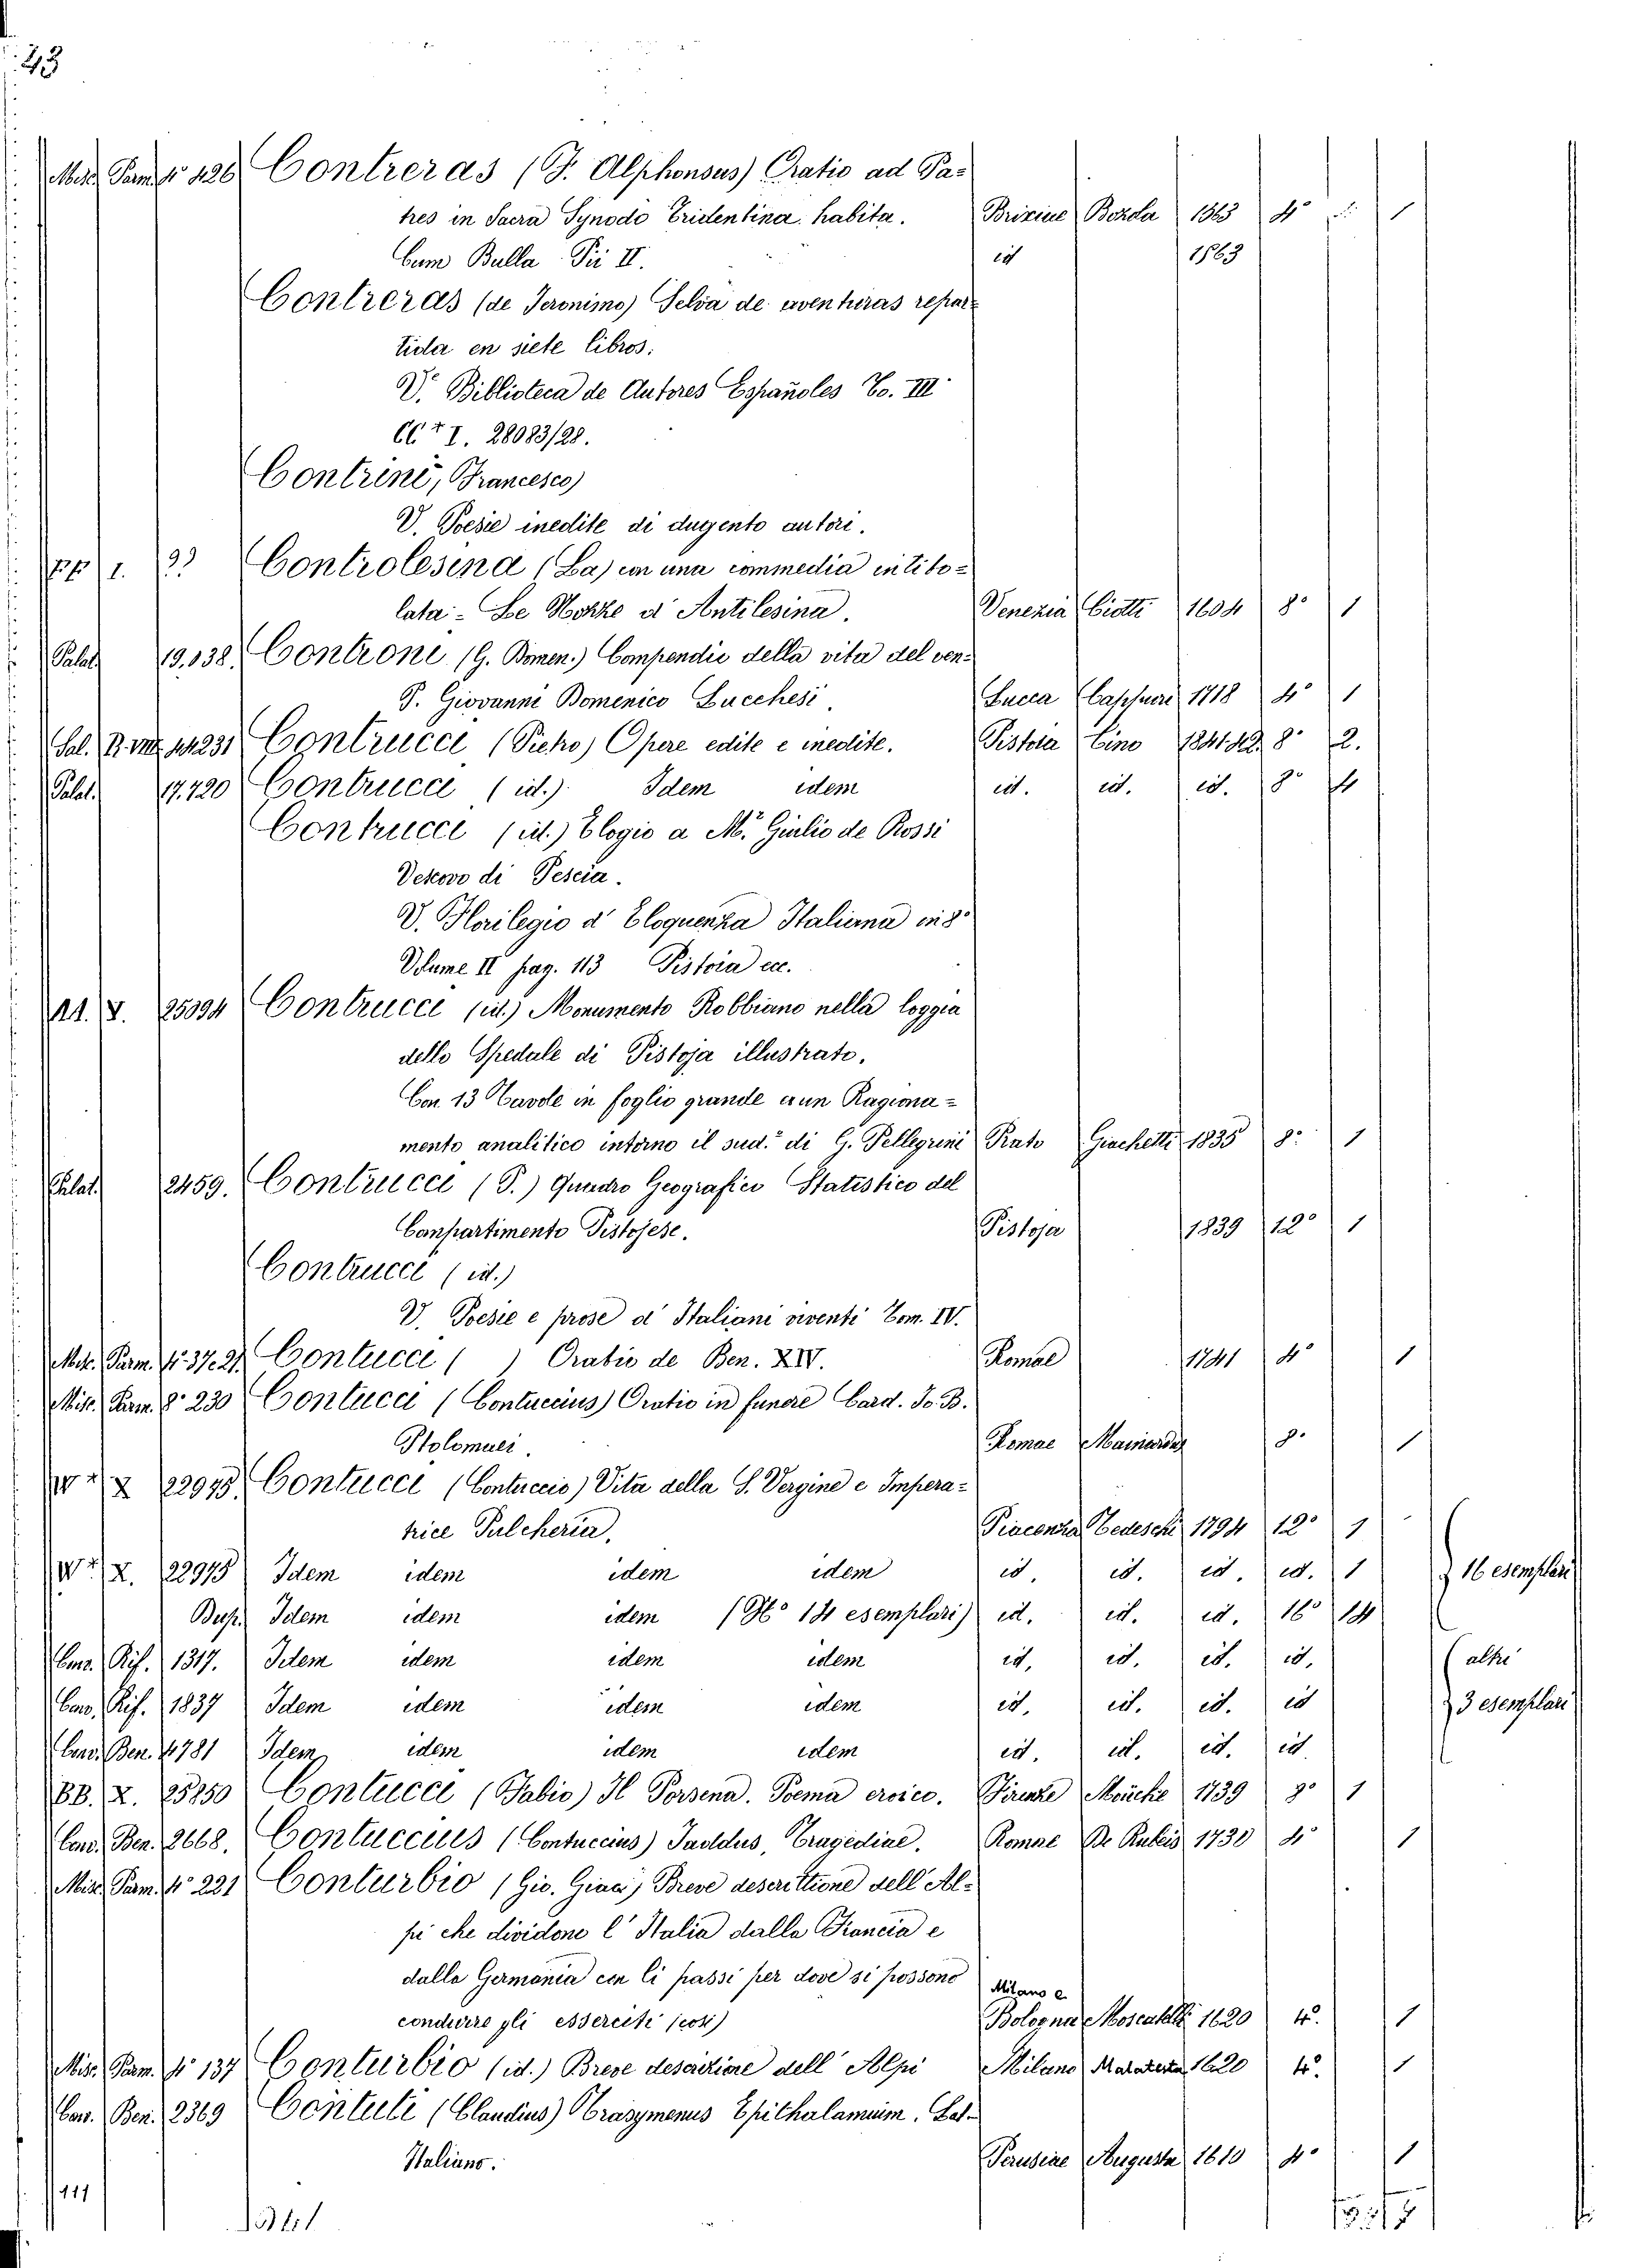 43
Misc. Parm. 4° 426 Contreras (F. Alphonsus) Oratio ad Pa=
tres in Sacra Synodo Tridentina habita. Brixiae Bozola 1563 4° 1
Cum Bulla Pii II. id 1563
Contreras (de Jeronimo) Selva de aventuras repar=
tida en siete libros:
V. Biblioteca de Autores Españoles To. III
CC + I. 28083/28.
Contrini, Francesco)
V. Poesie inedite di dugento autori.
I. Controlesina (La) con una commedia intito=
lata - Le Nozze d'Antilesina. Venezia Ciotti 1604 8° 1
Palat. 19.138. Controni (G. Domen.) Compendio della vita del ven=
P. Giovanni Domenico Lucchesi. Lucca Cappuri 1718 4° 1
Sal. R. VIII. 44231 Contrucci (Pietro) Opere edite e inedite. Pistoia Cino 1841.42. 8° 2.
Palat. 17.720 Contrucci (id.) Idem idem id. id. id. 8° 4
Contrucci (id.) Elogio a M.r Giulio de Rossi
Vescovo di Pescia.
V. Florilegio d'Eloquenza Italiana in 8°
Volume II pag. 113 Pistoia ecc.
V. 25094 Contrucci (id.) Monumento Robbiano nella loggia
dello Spedale di Pistoja illustrato.
Con 13 Tavole in foglio grande e un Ragiona=
mento analitico intorno il sud.° di G. Pellegrini Prato Giachetti 1835 8° 1
Palat. 2459. Contrucci (P.) Quadro Geografico Statistico del
Compartimento Pistojese. Pistoja 1839 12° 1
Contrucci (id.)
V. Poesie e prose d'Italiani viventi Tom. IV.
Misc. Parm. 4° 37.e 21 Contucci ( ) Oratio de Ben. XIV. Romae 1741 4° 1
Misc. Parm. 8° 230 Contucci (Contuccius) Oratio in funere Card. Jo. B.
Ptolomaei. Romae Mainardus 8° 1
W + X 22975. Contucci (Contuccio) Vita della S. Vergine e Impera=
trice Pulcheria. Piacenza Tedeschi 1794 12° 1
W + X. 22975 Idem idem idem idem id. id. id. id. 1 16 esemplari
Dup. Idem idem idem (N° 14 esemplari) id. id. id. 16° 14
Cors. Rif. 1317. Idem idem idem idem id. id. id. id. altri
Cors. Rif. 1837 Idem idem idem idem id. id. id. id 3 esemplari
Cors. Ben. 4781 Idem idem idem idem id. id. id. id
BB. X. 25250 Contucci (Fabio) Il Porsena. Poema eroico. Firenze Moücke 1739 8° 1
Cors. Ben. 2668. Contuccius (Contuccius) Tragediae. Romae De Rubeis 1730 4° 1
Misc. Parm. 4° 221 Conturbio (Gio. Giac.) Breve descrittione dell'Al=
pi che dividono l'Italia dalla Francia e
dalla Germania con li passi per dove si possono
condurre gli essereiti (così) Milano e Bologna Moscatelli 1620 4°. 1
Misc. Parm. 4° 137 Conturbio (id.) Breve descrizione dell'Alpi Milano Malatesta 1620 4°. 1
Cors. Ben. 2369 Contuli (Claudius) Trasymenus Epithalamium. Lat.
Italiano. Perusiae Augusta 1610 4° 1